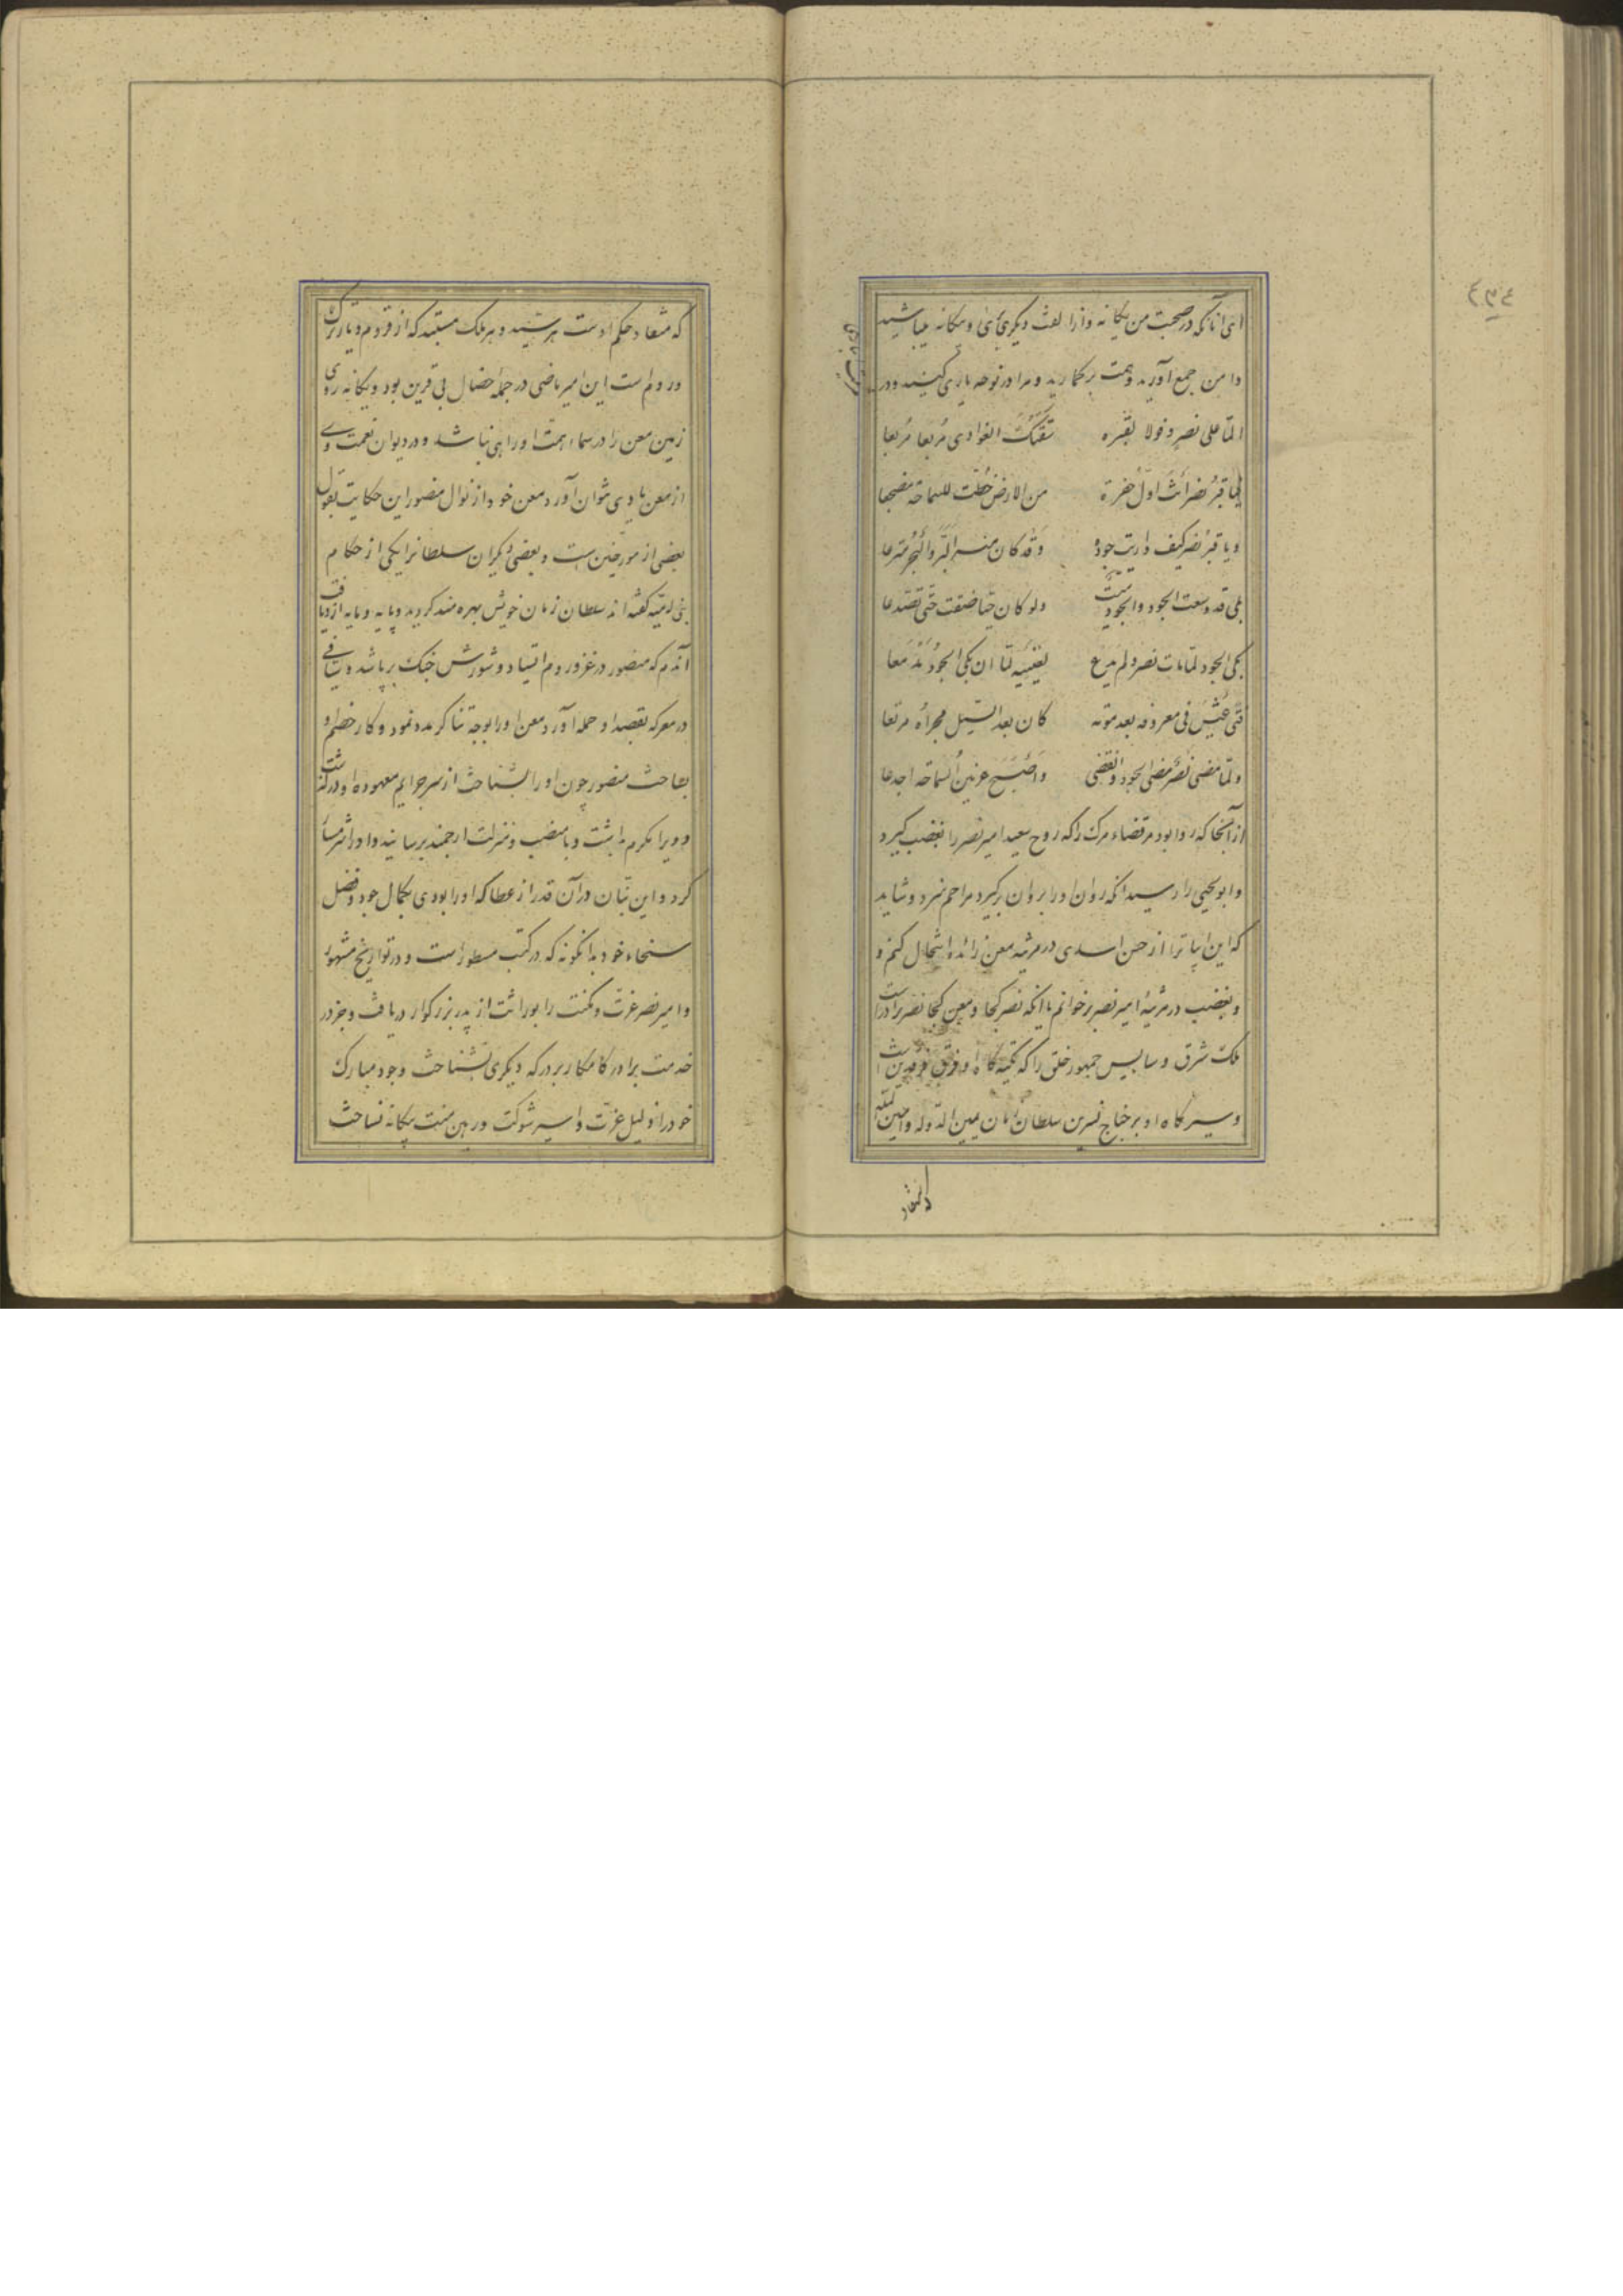 ای آنانکه در صحبت من یکانه واز الفت دیکری بیکانه میباشید
دامن جمع آورید و همت برکمارید و مرا در نوحه یاری کنید و در
المّا علی نصر و قولا لقبره سقتک الغوادی مربعا مربعا
فیا قبر نصر انت اول حفرة من الارض خطّت للسماحة مضجعا
ویا قبر نصر کیف واریت جوده وقد کان منه البرّ والبحر مترعا
بلی قد وسعت الجود والجود میّت ولو کان حیّا ضقت حتّی تصدعا
بکی الجود لمّا مات نصر ولم یدع لعینیه لمّا ان بکی الجود مدمعا
فتی عیش فی معروفه بعد موته کما کان بعد السّیل مجراه مرتعا
ولمّا مضی نصر مضی الجود وانقضی واصبح عرنین السماحة اجدعا
از آنجا که روا بود مر قضاء مرک را که روح سعید امیر نصر را بغضب کیرد
وابو یحیی را رسید انکه روان او را بروان برکیرد مرا هم سزد و شاید
که این ابیات را از حسن اسدی در مرثیه معن زائده انتحال کنم و
وبغضب در مرثیهٔ امیر نصر برخوانم با انکه نصر کجا و معن کجا نصر برادر است
ملک شرق و سایس جمهور خلق را که تکیه کاه او فرق فرقدین است
وسیر کاه او بر جناح نسرین سلطان زمان یمین الدّوله وامین الملّه
که منقاد حکم اوست هر سید و هر ملک مستبد که از قروم و یا در ترک
و روم است این امیر ماضی در جمله خصال بی قرین بود و یکانه روی
زمین معن را در سماء همت او راهی نباشد و در دیوان نعمت وی
از معن یادی نتوان آورد معن خود از نوال منصور این حکایت بقول
بعضی از مورخین است و بعضی دیکران سلطانرا یکی از حکام
بنی امیّه کفته اند سلطان زمان خویش بهره مند کردید و پایه و مایه ازو یافت
آندم که منصور در غزو روم افتاد و شورش جنک برپا شد و سیافی
در معرکه بقصد او حمله آورد معن او را بوجه تناکر مدد نمود و کار خصم او
بساخت منصور چون او را بشناخت از سر جرایم معهوده او درکذشت
و ویرا مکرم داشت و بمنصب و منزلت ارجمند برسانید و او را شرمسار
کرد و این نبّان در آن قدر از عطا که او را بودی بکمال جود و فضل
سخاء خود بدانکونه که در کتب مسطور است و در تواریخ مشهور
وامیر نصر عزّت و مکنت را بوراثت از پدر بزرکوار دریافت و جز در
خدمت برادر کامکار بر درکه دیکری نشناخت وجود مبارک
خود را ذلیل عزّت و اسیر شوکت و رهین منت بیکانه نساخت